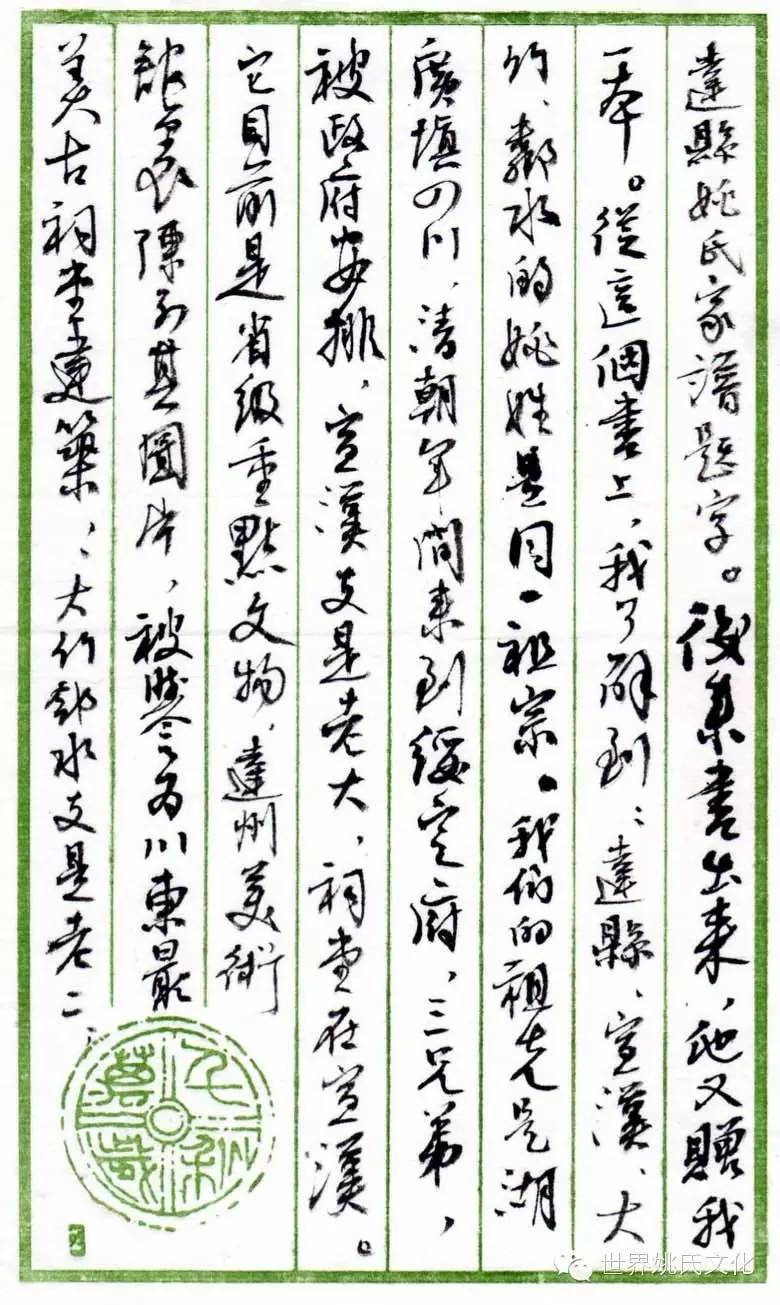 達縣姚氏家譜題字。後來書出來，他又贈我
一本。從這個書上，我了解到：達縣、宣漢、大
竹、鄰水的姚姓是同一祖宗。我们的祖先是湖
廣填四川，清朝年間来到綏定府，三兄弟，
被政府安排，宣漢支是老大，祠堂在宣漢。
它目前是省级重點文物，達州美術
館裏陳列其圖片，被誉为川東最
美古祠堂建築；大竹鄰水支是老二；
世界姚氏文化